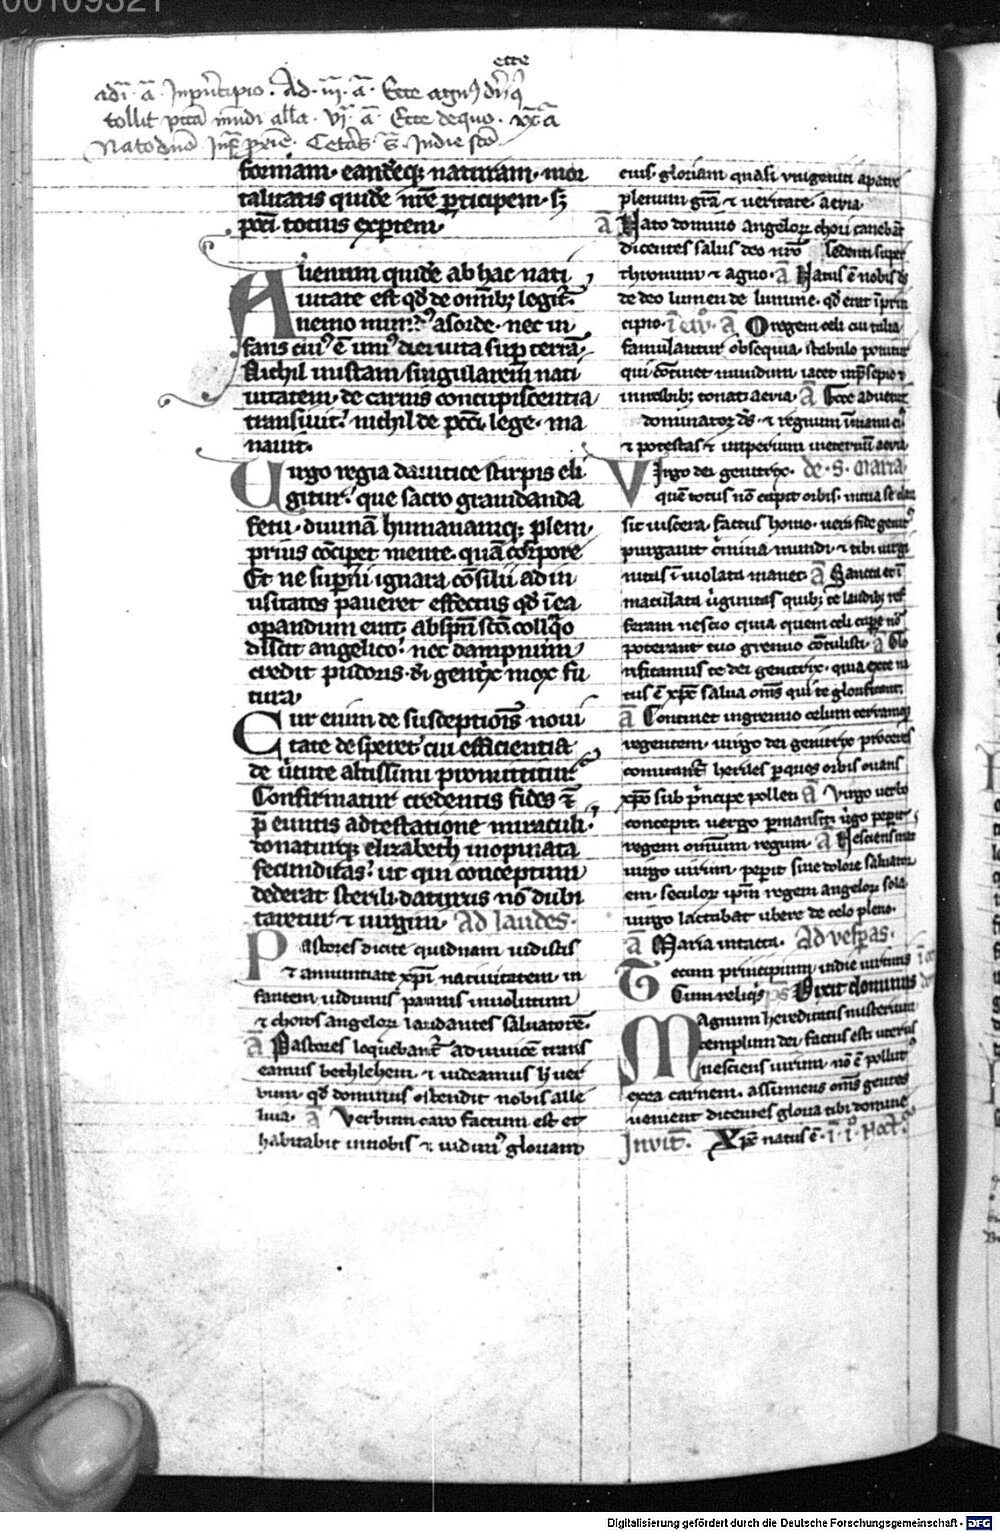 00109321
ecce
adi · a̅ · Inprncipio · Ad · iij · a̅ · Ecce agnꝰ dei q
tollit pcca mundi alla · vj · a̅ · Ecce de quo · ix a̅
Nato dno
formam · eandeqꝫ naturam · mor
talitatis quide nre participem · sꝫ
pcci totius expertem ·
Alienum quide ab hac nati
uitate est qd de omibꝫ legit᷑
nemo mundꝰ a sorde · nec in
fans cuiꝰ e uniꝰ diei uita sup terra ·
Nichil in istam singularem nati
uitatem · de carnis concupiscentia
transiuit · nichil de pcci lege · ma
nauit ·
Uirgo regia dauitice stirpis eli
gitur · que sacro grauidanda
fetu · diuina humanamqꝫ plem ·
prius conciperet mente quam corpore
Et ne superni ignara consilii ad in
usitatos paueret effectus qd in ea
operandum erat · a spu sco colloqio
discit angelico · nec dampnum
credit pudoris · di genitrix mox fu
tura ·
Cur enim de susceptionis noui
tate desperet · cui efficientia
de uirtute altissimi promittitur
Confirmatur credentis fides et
p euntis adtestatione miraculi ·
donaturqꝫ elizabeth inopinata
fecunditas · ut qui conceptum
dederat sterili · daturus no dubi
taretur et uirgini · Ad laudes ·
Pastores dicite quidnam uidistis
et annuntiate xpi natiuitatem · in
fantem uidimus pannis inuolutum
et choros angeloꝝ laudantes saluatore ·
a̅ Pastores loquebant᷑ ad inuice trans
eamus bethlehem · et uideamus h uer
bum · qd dominus ostendit nobis alle
luia · a̅ Verbum caro factum est et
habitabit in nobis et uidimꝰ gloriam
eius · gloriam quasi unigeniti a patre
plenum gra et ueritate aeuia
a̅ Nato domino angeloꝝ chori canebat
dicentes salus deo nro sedenti super
thronum et agno · a̅ Natus e nobis ds
de deo lumen de lumine · qd erat in prin
cipio · in eu · a̅ O regem celi cui talia
famulantur obsequia · stabulo ponitur
qui continet mundum iacet in presepio et
in nubibꝫ tonat aeuia · a̅ Ecce aduenit
dominator ds · et regnum in manu eiꝰ
et potestas et imperium in eternum aeuia
Virgo dei genitrix · de · s · Maria
que totus no capit orbis · in tua se clau
sit uiscera · factus homo · uera fide genitꝰ
purgauit crimina mundi · et tibi uirgi
nitas inuiolata manet a̅ Sancta et in
maculata uirginitas quibꝫ te laudibꝫ ref
feram nescio quia quem celi capere no
poterant tuo gremio contulisti · a̅ Glo
rificamus te dei genitrix · quia ex te na
tus e xpc salua oms qui te glorificant ·
a̅ Continet in gremio celum terramqꝫ
regentem · uirgo dei genitrix proceres
comitant᷑ heriles per quos orbis ouans
xpo sub principe pollet a̅ Virgo uerbo
concepit · uirgo permansit · uirgo peperit
regem omnium regum · a̅ Nesciens mater
uirgo uirum · peperit sine dolore saluator
em · seculoꝝ ipsum regem angeloꝝ sola
uirgo lactabat ubere de celo pleno ·
a̅ Maria intacta · Ad vespas ·
Tecum principium · in die uirtutis
Cum reliqis ps Dixit dominus
Magnum hereditatis misterium
templum dei factus est · uterus
nesciens uirum · no e pollutꝰ
ex ea carnem · assumens oms gentes
uenient dicentes gloria tibi domine
Inuit · Xpc natus e · i · iº · Noct ·
Digitalisierung gefördert durch die Deutsche Forschungsgemeinschaft - DFG